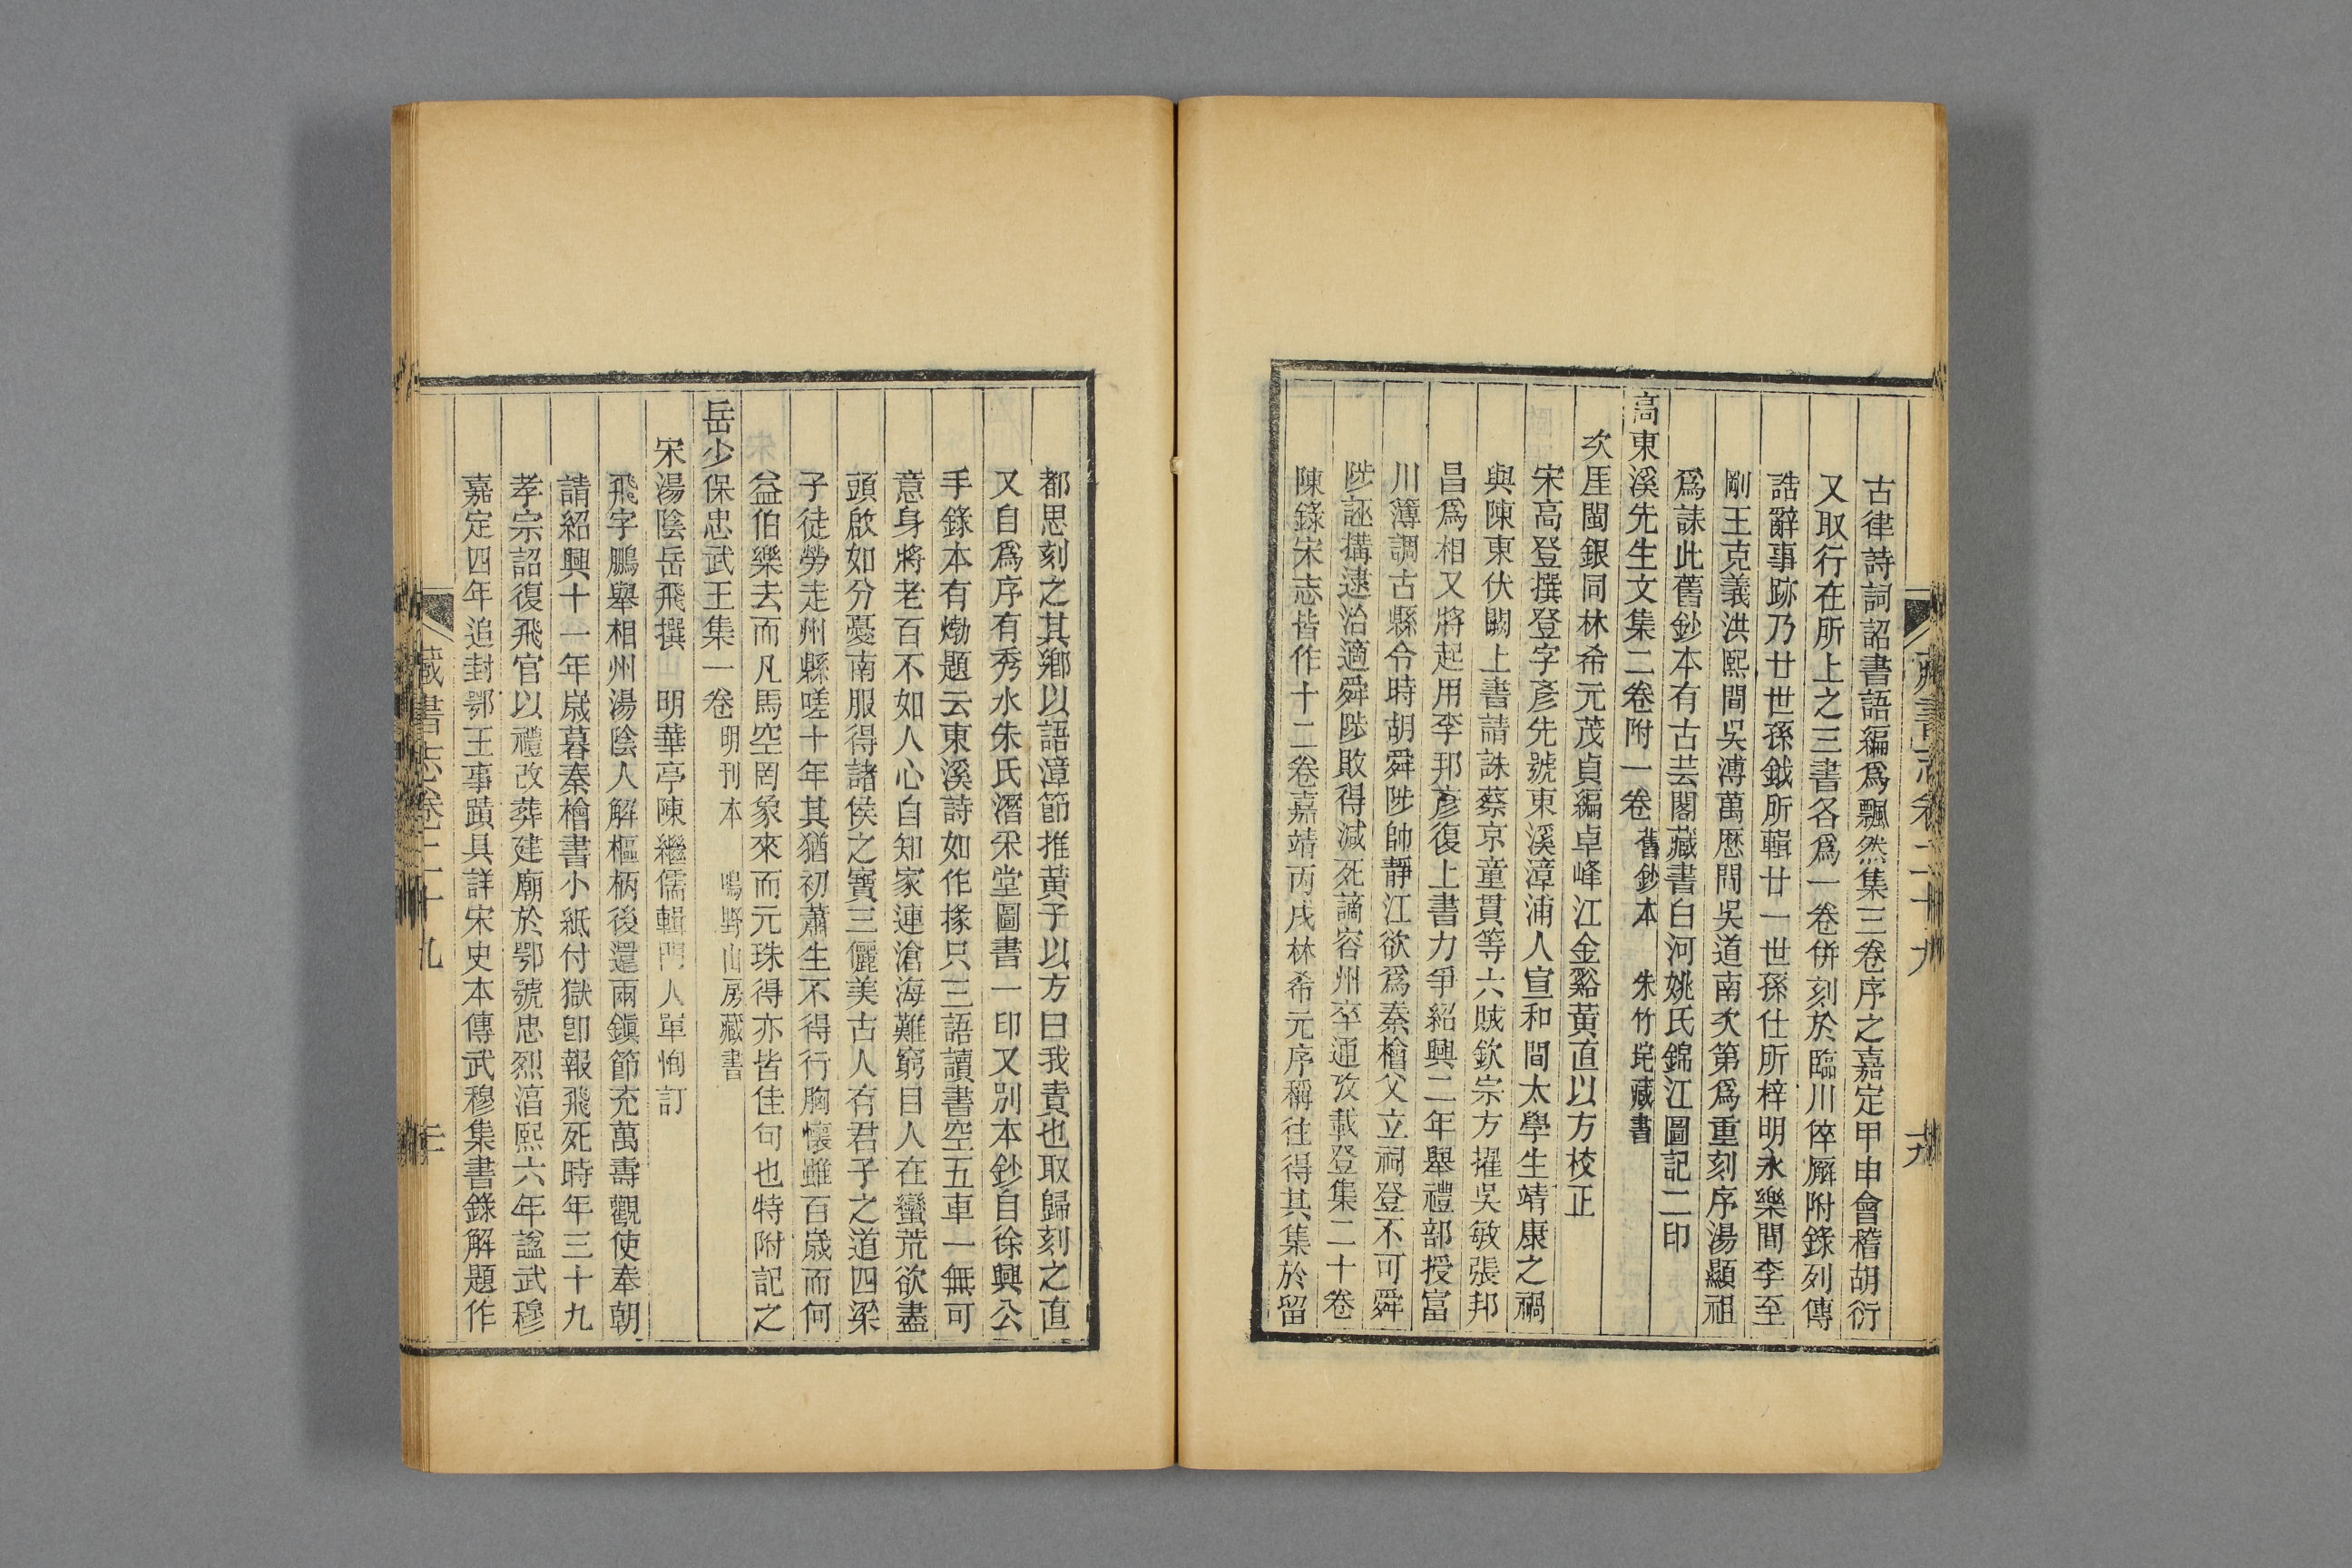 古律詩詞詔書語編爲飄然集三卷序之嘉定甲申會稽胡衍
又取行在所上之三書各爲一卷併刻於臨川倅廨附錄列傳
誥辭事跡乃廿世孫鉞所輯廿一世孫仕所梓明永樂間李至
剛王克義洪熙間吳溥萬厯間吳道南次第爲重刻序湯顯祖
爲誄此舊鈔本有古芸閣藏書白河姚氏錦江圖記二印
高東溪先生文集二卷附一卷 舊鈔本 朱竹垞藏書
次厓閩銀同林希元茂貞編卓峰江金谿黃直以方校正
宋高登撰登字彥先號東溪漳浦人宣和間太學生靖康之禍
與陳東伏闕上書請誅蔡京童貫等六賊欽宗方擢吳敏張邦
昌爲相又將起用李邦彥復上書力爭紹興二年舉禮部授富
川簿調古縣令時胡舜陟帥靜江欲爲秦檜父立祠登不可舜
陟誣搆逮治適舜陟敗得減死謫容州卒通攷載登集二十卷
陳錄宋志皆作十二卷嘉靖丙戌林希元序稱往得其集於留
都思刻之其鄉以語漳節推黃子以方曰我責也取歸刻之直
又自爲序有秀水朱氏潛采堂圖書一印又別本鈔自徐興公
手錄本有㷫題云東溪詩如作掾只三語讀書空五車一無可
意身將老百不如人心自知家連滄海難窮目人在蠻荒欲盡
頭啟如分憂南服得諸侯之寶三儷美古人有君子之道四梁
子徒勞走州縣嗟十年其猶初蕭生不得行胸懷雖百歲而何
益伯樂去而凡馬空罔象來而元珠得亦皆佳句也特附記之
岳少保忠武王集一卷 明刊本 鳴野山房藏書
宋湯陰岳飛撰 明華亭陳繼儒輯門人單恂訂
飛字鵬舉相州湯陰人解樞柄後還兩鎭節充萬壽觀使奉朝
請紹興十一年歲暮秦檜書小紙付獄卽報飛死時年三十九
孝宗詔復飛官以禮改葬建廟於鄂號忠烈淳熙六年諡武穆
嘉定四年追封鄂王事蹟具詳宋史本傳武穆集書錄解題作
藏書志卷二十九